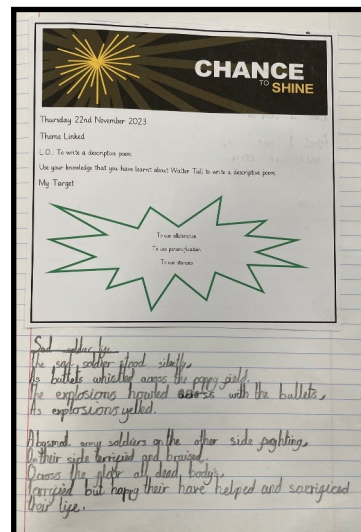 CHANCE
TO SHINE
Thursday 22nd November 2023
Theme Linked
L.O.: To write a descriptive poem.
Use your knowledge that you have learnt about Walter Tull to write a descriptive poem.
My Target
To use alliteration
To use personification
To use stanzas
Sad soldier
The sad soldier stood silently,
As bullets whistled across the poppy field.
The explosions howled with the bullets,
As explosions yelled.
Abysmal army soldiers on the other side fighting,
their side terrified and
the floor all dead body's,
Terrified but happy their have helped and sacrificed
their life.